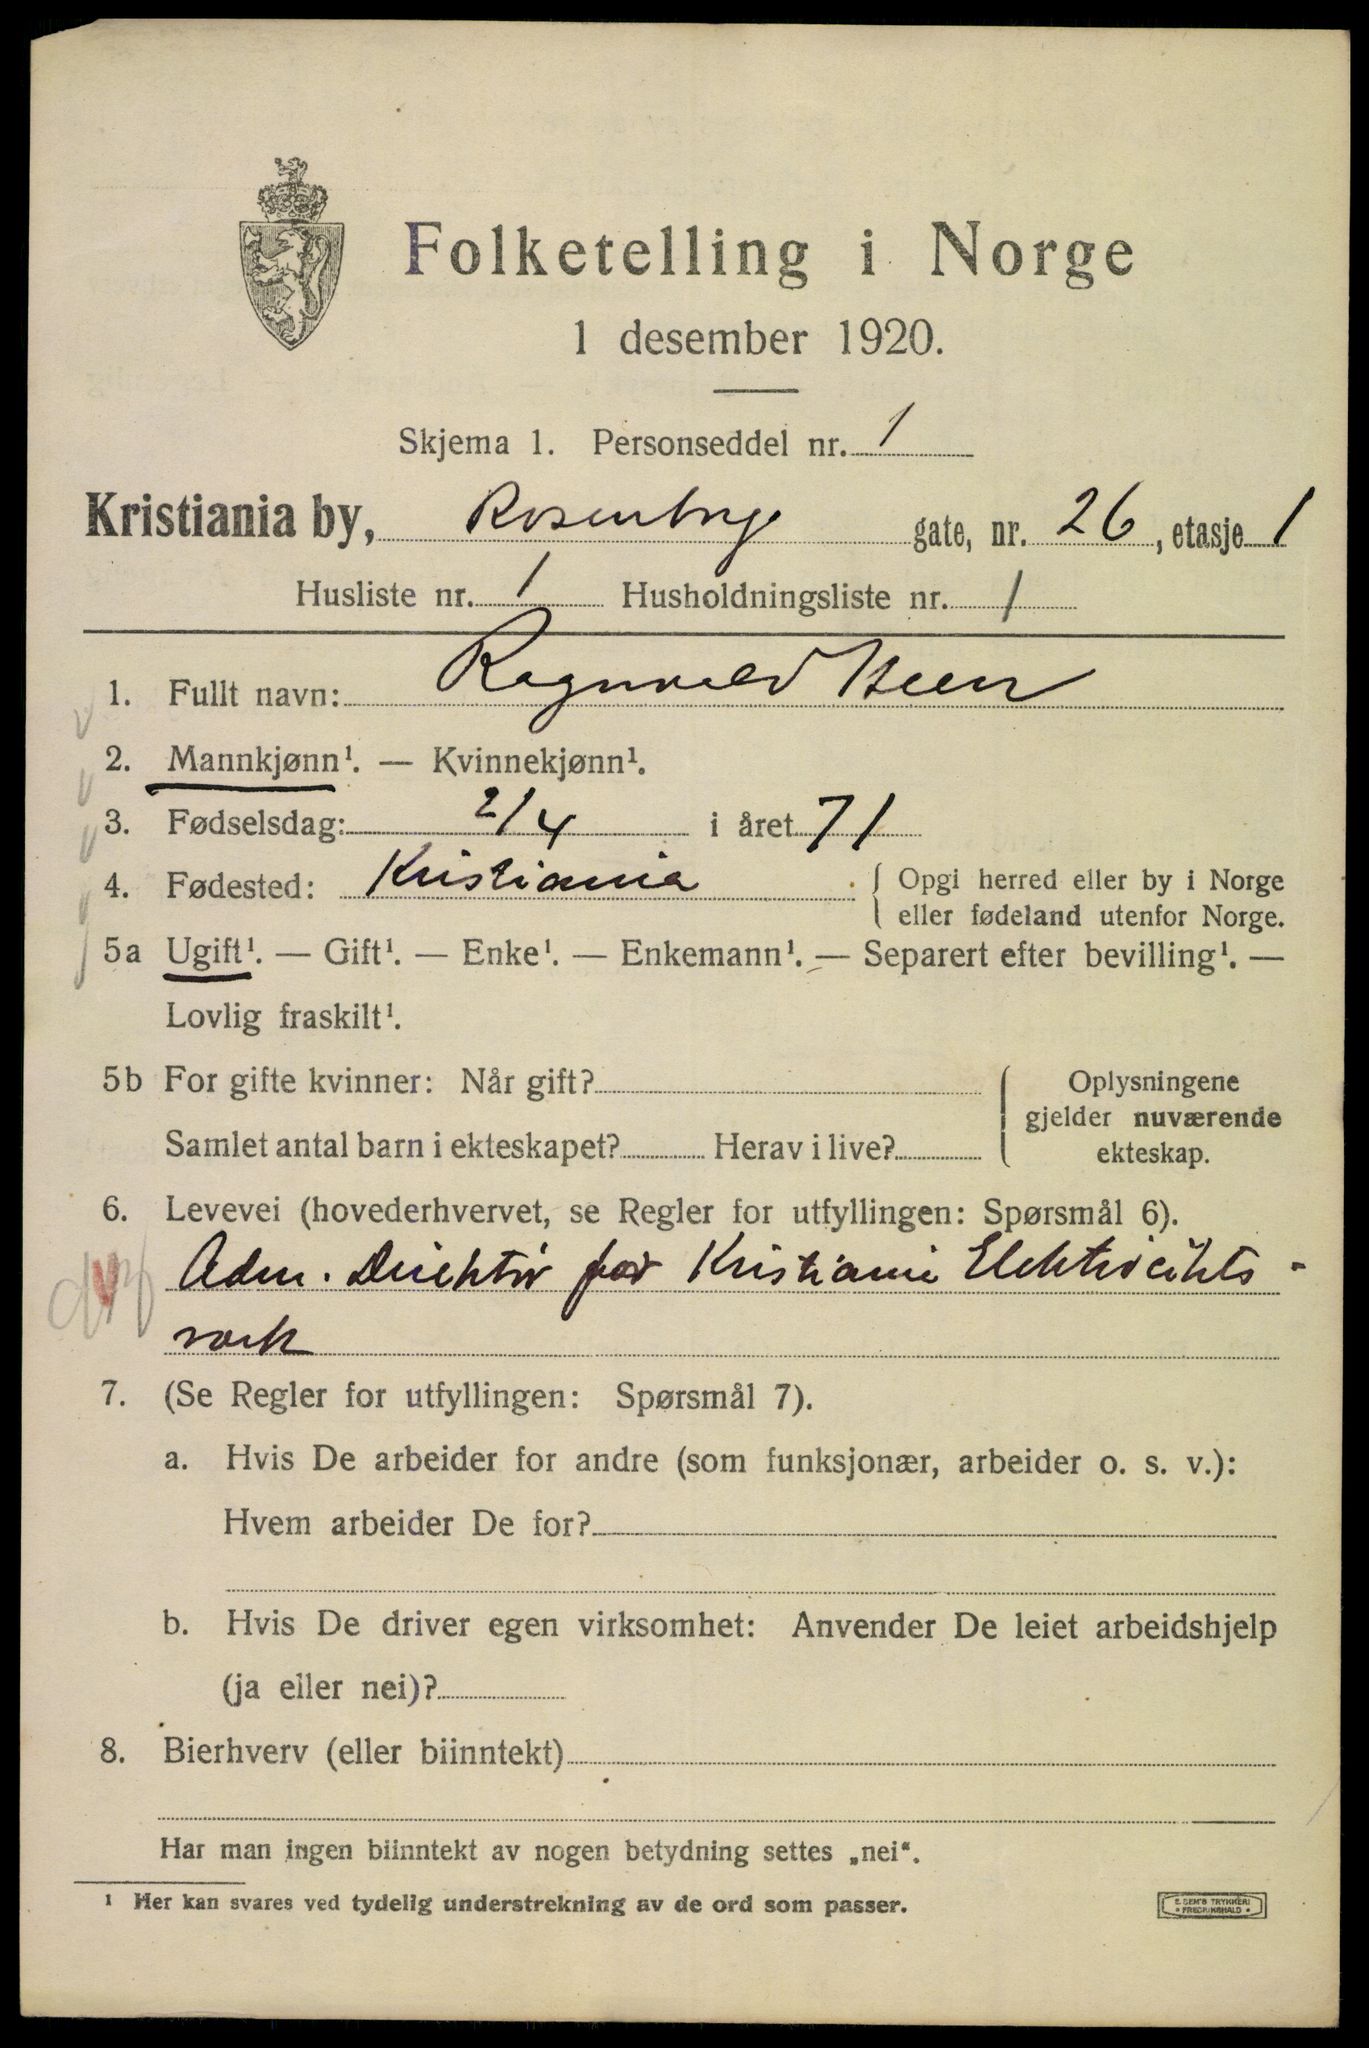 Folketelling i Norge
1 desember 1920.
Skjema 1. Personseddel nr. 1
Kristiania by, Rosenborg gate, nr. 26, etasje 1
Husliste nr. 1 Husholdningsliste nr. 1
1. Fullt navn: Ragnvald Steen
2. Mannkjønn¹. — Kvinnekjønn¹.
3. Fødselsdag: 2/4 i året 71
4. Fødested: Kristiania { Opgi herred eller by i Norge
eller fødeland utenfor Norge.
5a Ugift¹. — Gift¹. — Enke¹. — Enkemann¹. — Separert efter bevilling¹. —
Lovlig fraskilt¹.
5b For gifte kvinner: Når gift?
Samlet antal barn i ekteskapet? Herav i live?
Oplysningene
gjelder nuværende
ekteskap.
6. Levevei (hovederhvervet, se Regler for utfyllingen: Spørsmål 6).
Adm. Direktør for Kristiania Elektricitets-
værk
7. (Se Regler for utfyllingen: Spørsmål 7).
a. Hvis De arbeider for andre (som funksjonær, arbeider o. s. v.):
Hvem arbeider De for?
b. Hvis De driver egen virksomhet: Anvender De leiet arbeidshjelp
(ja eller nei)?
8. Bierhverv (eller biinntekt)
Har man ingen biinntekt av nogen betydning settes „nei“.
¹ Her kan svares ved tydelig understrekning av de ord som passer.
E. SEM'S TRYKKERI
• FREDRIKSHALD •